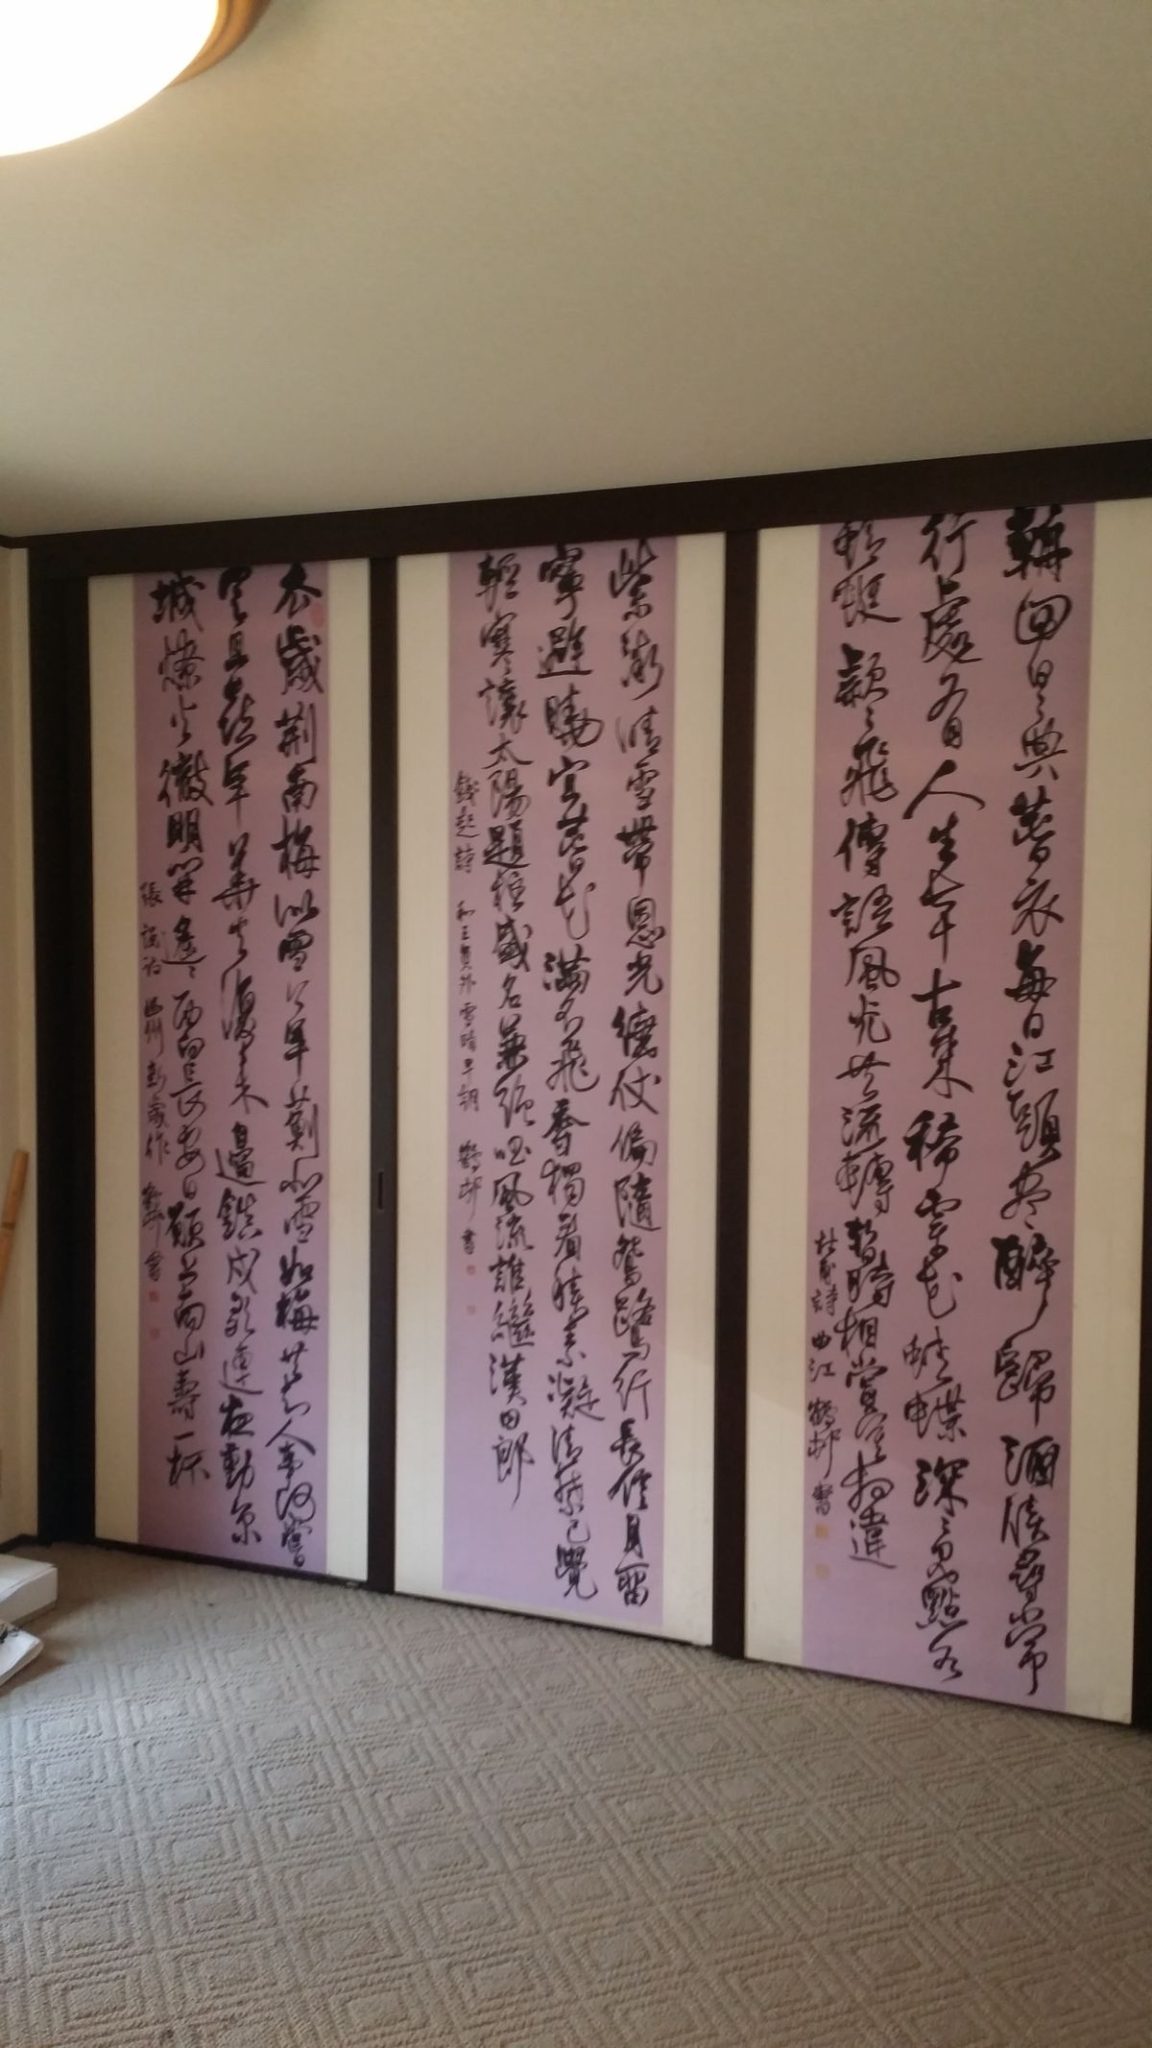 朝回日々典春衣每日江頭盡醉歸酒債尋常
行處有人生七十古來稀穿花蛺蝶深々見點水
蜻蜓款々飛傳語風光共流轉暫時相賞莫相違
杜甫詩 曲江 鶴邨書
紫微晴雪帶恩光繞仗偏隨鴛鷺行長信月留
寧避曉宜春花滿不飛香獨看積素凝清禁已覺
輕寒讓太陽題柱盛名兼絶唱風流誰繼漢田郎
錢起詩 和王員外雪晴早朝 鶴邨書
去歲荊南梅似雪今年薊北雪如梅共知人事何嘗
定且喜年華去復來邊鎮戍歌連夜動京
城燎火徹明開遙々西向長安日願上南山壽一杯
張說詩 幽州新歲作 鶴邨書